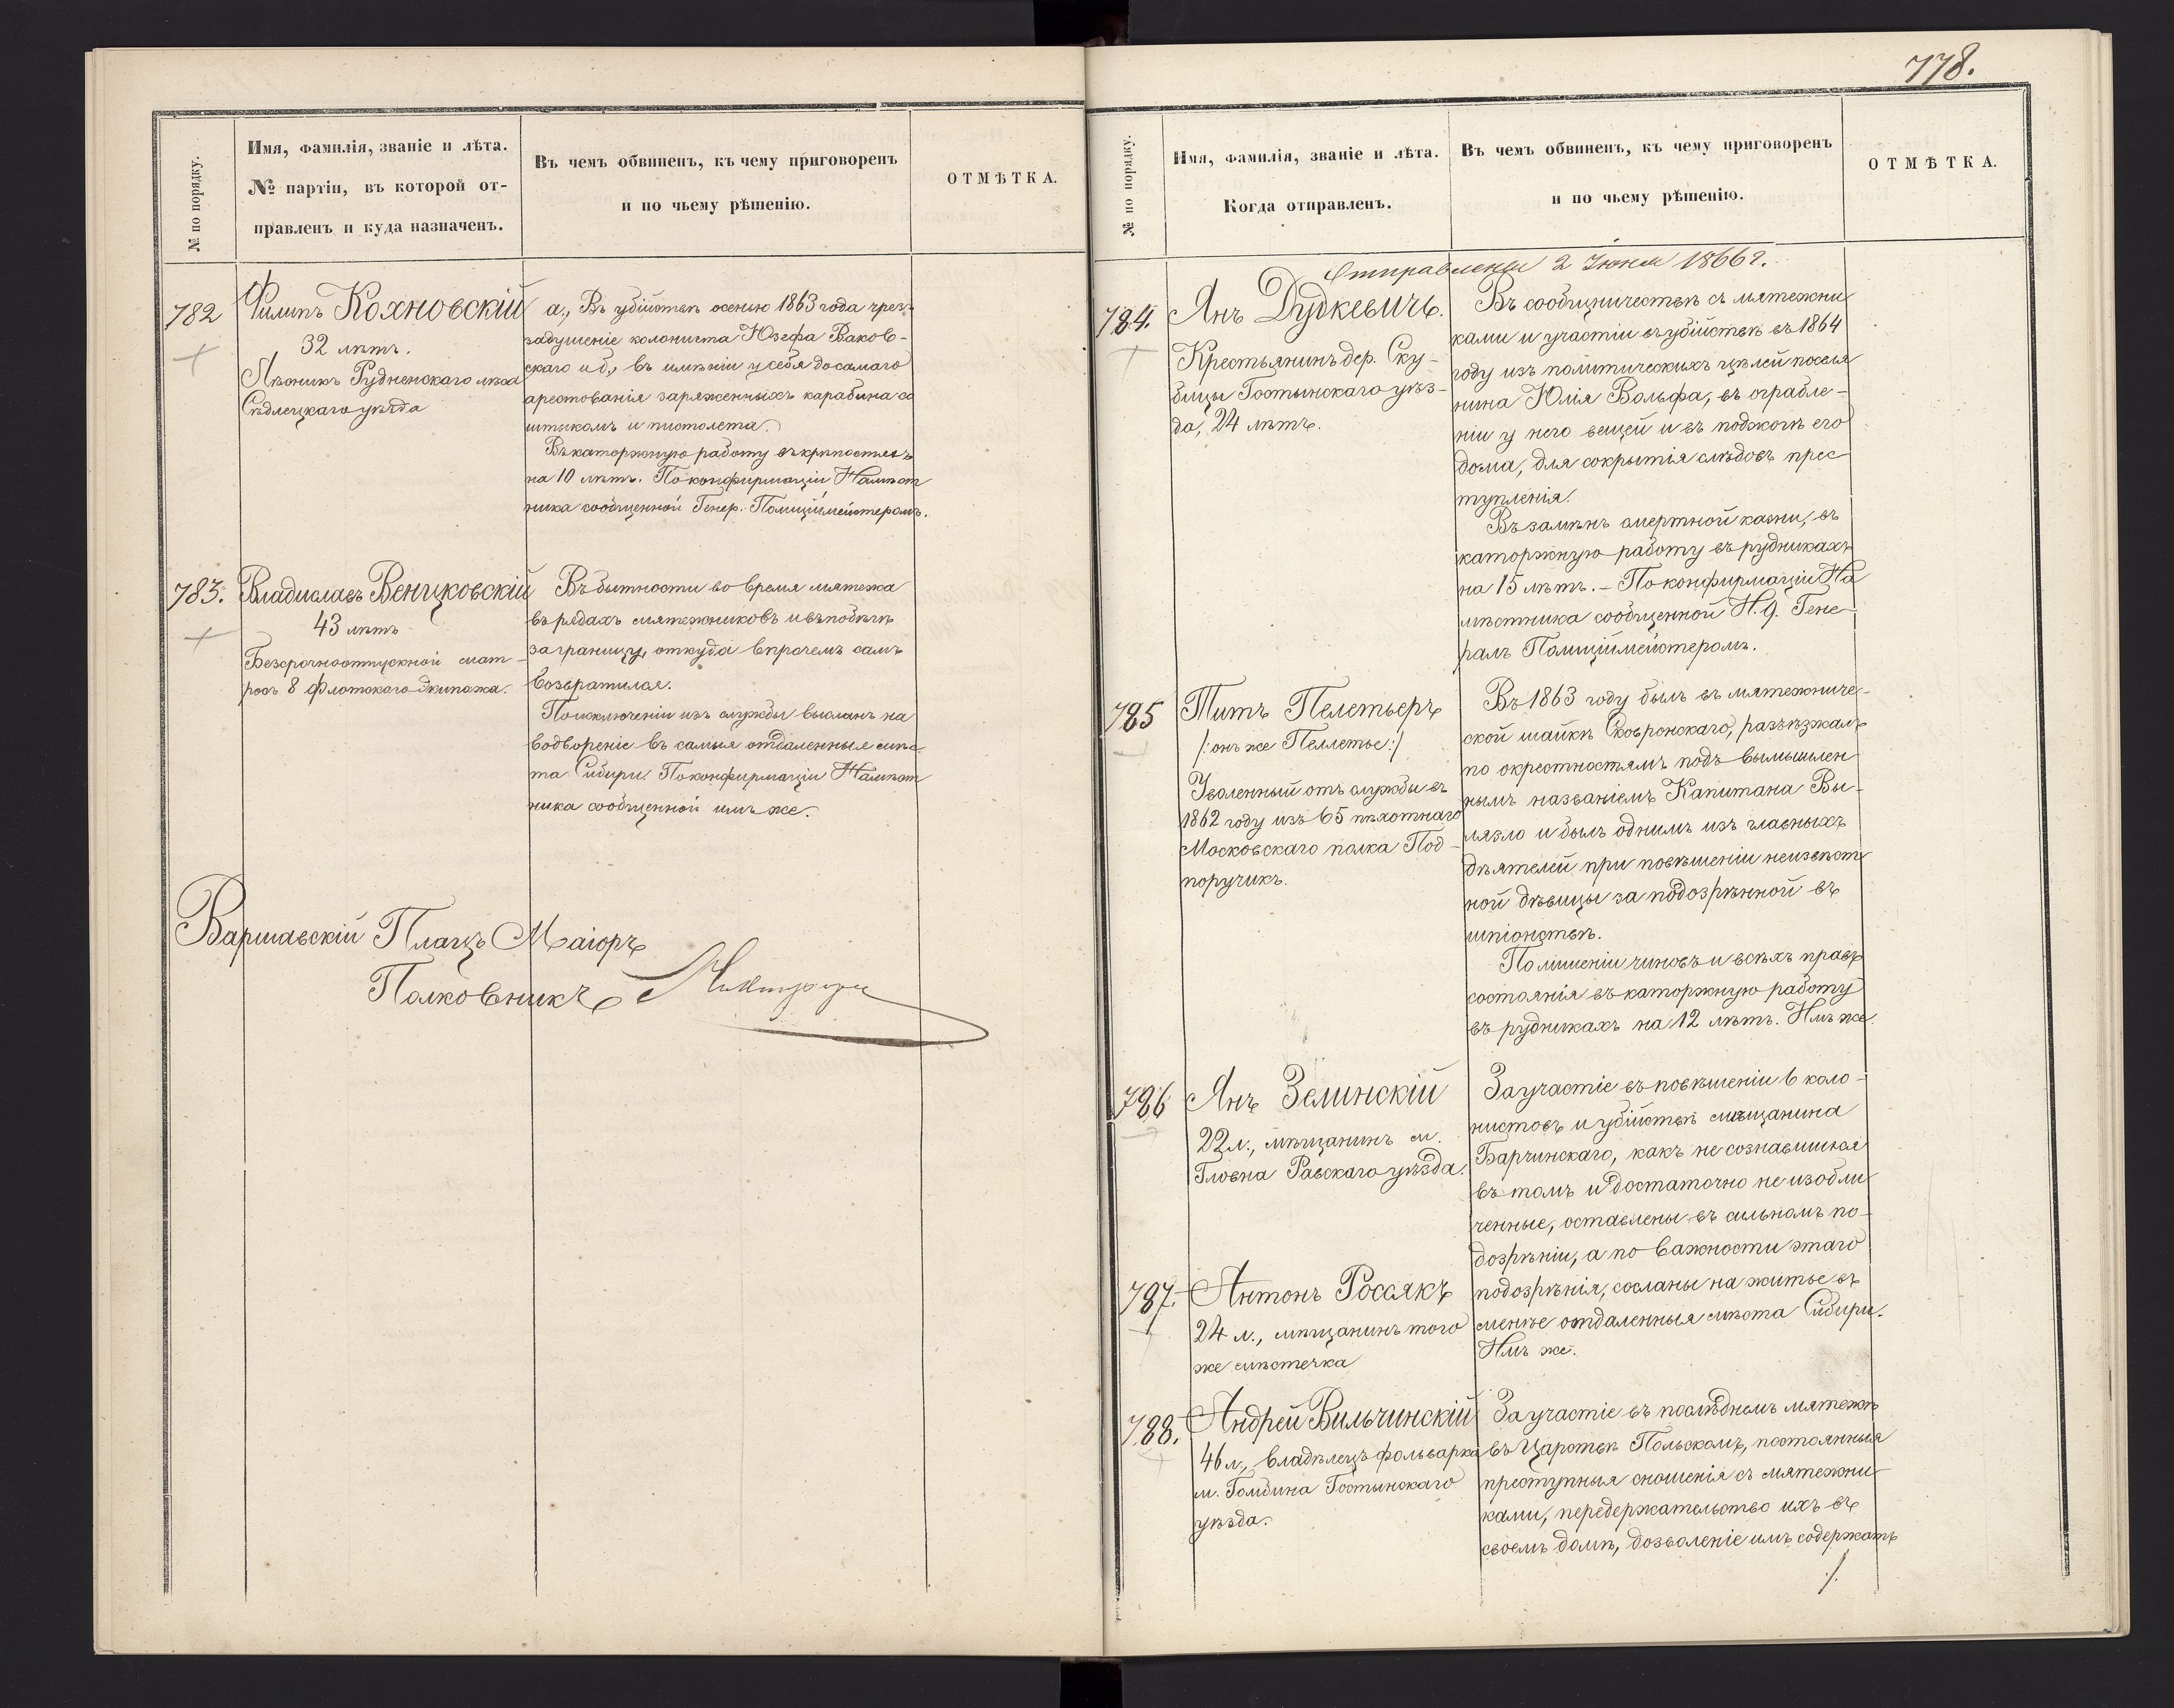 № по порядку.
Имя, фамилія, званіе и лѣта.
№ партіи, въ которой от-
правленъ и куда назначенъ.
Въ чемъ обвиненъ, къ чему приговоренъ
и по чьему рѣшенію.
ОТМѢТКА.
782
Филипъ Кохновскій
32 лѣтъ.
Лѣсникъ Рудненскаго лѣса
Сѣдлецкаго уѣзда
а., Въ убійствѣ осенью 1863 года чрезъ
задушеніе колониста Юзефа Ваков-
скаго и б., въ имѣніи у себя до самаго
арестованія заряженныхъ карабина со
штыкомъ и пистолета.
Въ каторжную работу въ крѣпостяхъ
на 10 лѣтъ. По конфирмаціи Намѣст
ника сообщенной Генер. Полицiймейстеромъ.
783.
Владиславъ Венцковскій
43 лѣтъ
Безсрочноотпускной мат-
росъ 8 Флотскаго Экипажа.
Въ бытности во время мятежа
въ рядахъ мятежниковъ и въ побѣгѣ
заграницу, откуда впрочемъ самъ
возвратился.
По исключеніи изъ службы высланъ на
водвореніе въ самыя отдаленныя мѣс-
та Сибири. По конфирмаціи Намѣст
ника сообщенной имъ же.
Варшавскій Плацъ Маіоръ
Полковникъ
778.
№ по порядку.
Имя, фамилія, званіе и лѣта.
Когда отправленъ.
Въ чемъ обвиненъ, къ чему приговоренъ
и по чьему рѣшенію.
ОТМѢТКА.
Отправлены 2 Іюня 1866 г.
784.
Янъ Дудкевичъ.
Крестьянинъ дер. Ску-
бицы Гостынскаго уѣз-
да, 24 лѣтъ.
Въ сообщничествѣ съ мятежни
ками и участіи въ убійствѣ въ 1864
году изъ политическихъ цѣлей поселя
нина Юлія Вольфа, въ ограбле-
ніи у него вещей и въ поджогѣ его
дома, для сокрытія слѣдовъ прес
тупленія.
Въ замѣнъ смертной казни, въ
каторжную работу въ рудникахъ
на 15 лѣтъ. – По конфирмаціи На
мѣстника сообщенной И. д. Гене-
ралъ Полиціймейстеромъ.
785
Титъ Пелетьеръ
/: онъ же Пеллетье :/
Уволенный отъ службы въ
1862 году изъ 65 пѣхотнаго
Московскаго полка Под-
поручикъ.
Въ 1863 году былъ въ мятежниче-
ской шайкѣ Сковронскаго, разъѣзжалъ
по окрестностямъ подъ вымышлен
нымъ названіемъ Капитана Вы-
лязло и былъ однимъ изъ главныхъ
дѣятелей при повѣшеніи неизвѣст
ной дѣвицы заподозрѣнной въ
шпіонствѣ.
По лишеніи чиновъ и всѣхъ правъ
состоянія въ каторжную работу
въ рудникахъ на 12 лѣтъ. Имъ же
786
Янъ Зелинскій
22 л., мѣщанинъ м.
Гловна Равскаго уѣзда.
За участіе въ повѣшеніи 6 коло-
нистовъ и убійствѣ мѣщанина
Барчинскаго, какъ не сознавшіися
въ томъ и достаточно не изобли
ченные, оставлены въ сильномъ по-
дозрѣніи, а по важности этаго
подозрѣнія, сосланы на житье въ
менѣе отдаленныя мѣста Сибири.
Имъ же.
787.
Антонъ Россякъ
24 л., мѣщанинъ того
же мѣстечка
788.
Андрей Вильчинскій
46 л., владѣлецъ фольварка
м. Гомбина Гостынскаго
уѣзда.
За участіе въ послѣднемъ мятежѣ
въ Царствѣ Польскомъ, постоянныя
преступныя сношенія съ мятежни
ками, передержательство ихъ въ
своемъ домѣ, дозволеніе имъ содержать
/.